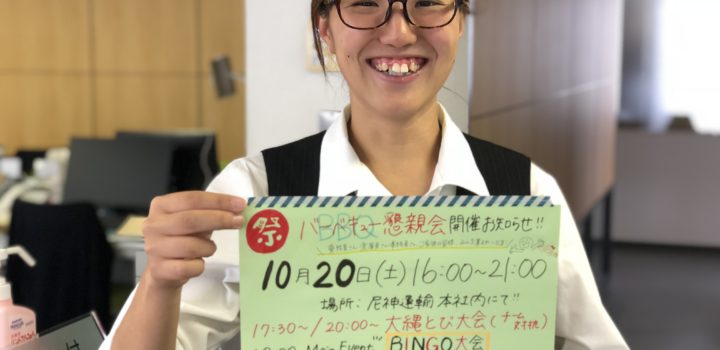 祭 バーベキュー BBQ 懇親会 開催お知らせ!!
10月20日(土)16:00~21:00
場所:尼神運輸 本社内にて!!
17:30~/20:00~ 大縄とび大会(チーム対抗)
Main Event BINGO大会